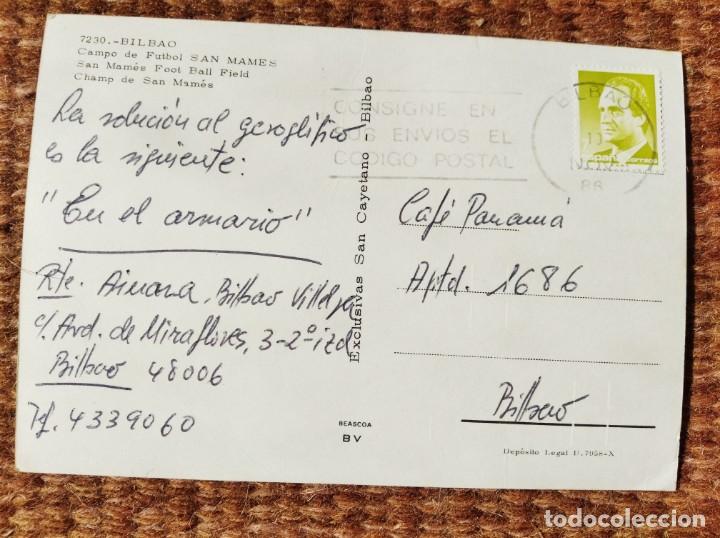 7230.-BILBAO
Campo de Futbol SAN MAMES
San Mamés Foot Ball Field
Champ de San Mamés
La solución al geroglífico
es la siguiente:
"En el armario"
Rte. Ainara Bilbao
c/ Avd. de Miraflores, 3-2º izd
Bilbao 48006
Tf. 4339060
Exclusivas San Cayetano - Bilbao
BEASCOA
BV
CONSIGNE EN
SUS ENVIOS EL
CODIGO POSTAL
BILBAO
10
NOV
86
España correos
Café Panamá
Aptd. 1686
Bilbao
Depósito Legal B.7958-X
todocoleccion